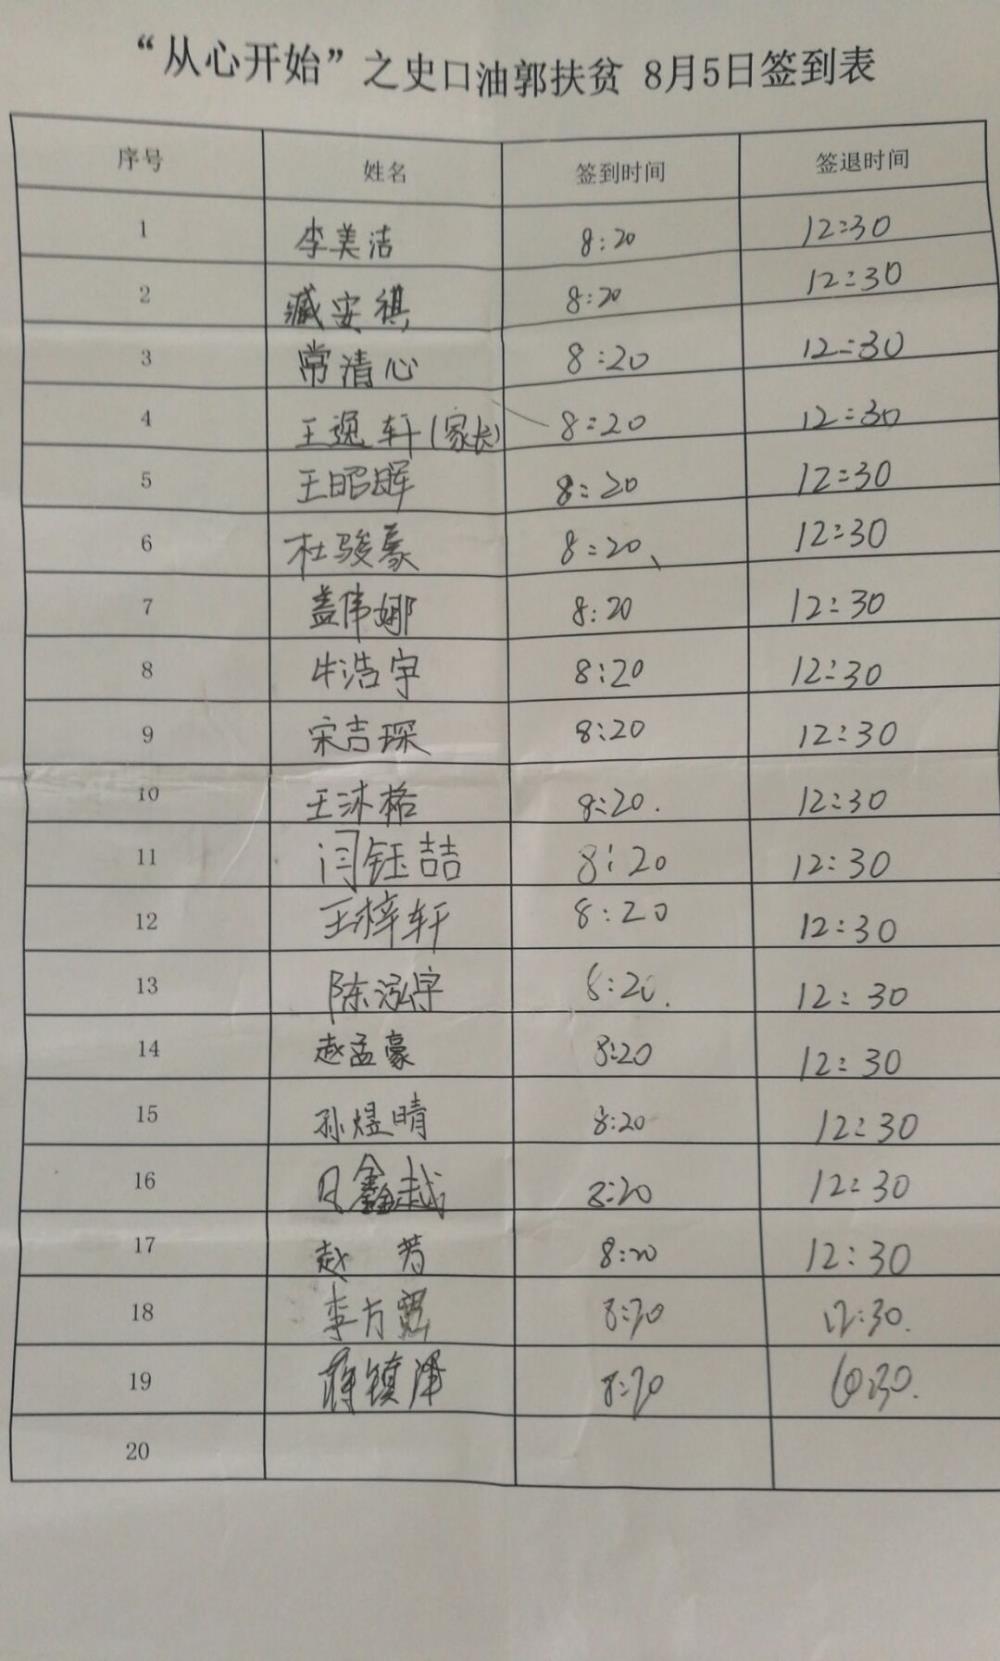 “从心开始”之史口油郭扶贫 8月5日签到表
序号 姓名 签到时间 签退时间
1 李美洁 8:20 12:30
2 臧安祺 8:20 12:30
3 常清心 8:20 12:30
4 王逸轩(家长) 8:20 12:30
5 王昭晖 8:20 12:30
6 杜骏豪 8:20、 12:30
7 盖伟娜 8:20 12:30
8 牛浩宇 8:20 12:30
9 宋吉琛 8:20 12:30
10 王沐格 8:20. 12:30
11 闫钰喆 8:20 12:30
12 王梓轩 8:20 12:30
13 陈泓宇 8:20. 12:30
14 赵孟豪 8:20 12:30
15 孙煜晴 8:20 12:30
16 鑫越 8:20 12:30
17 赵芳 8:20 12:30
18 李方 8:20 12:30.
19 蒋镇泽 8:20
20